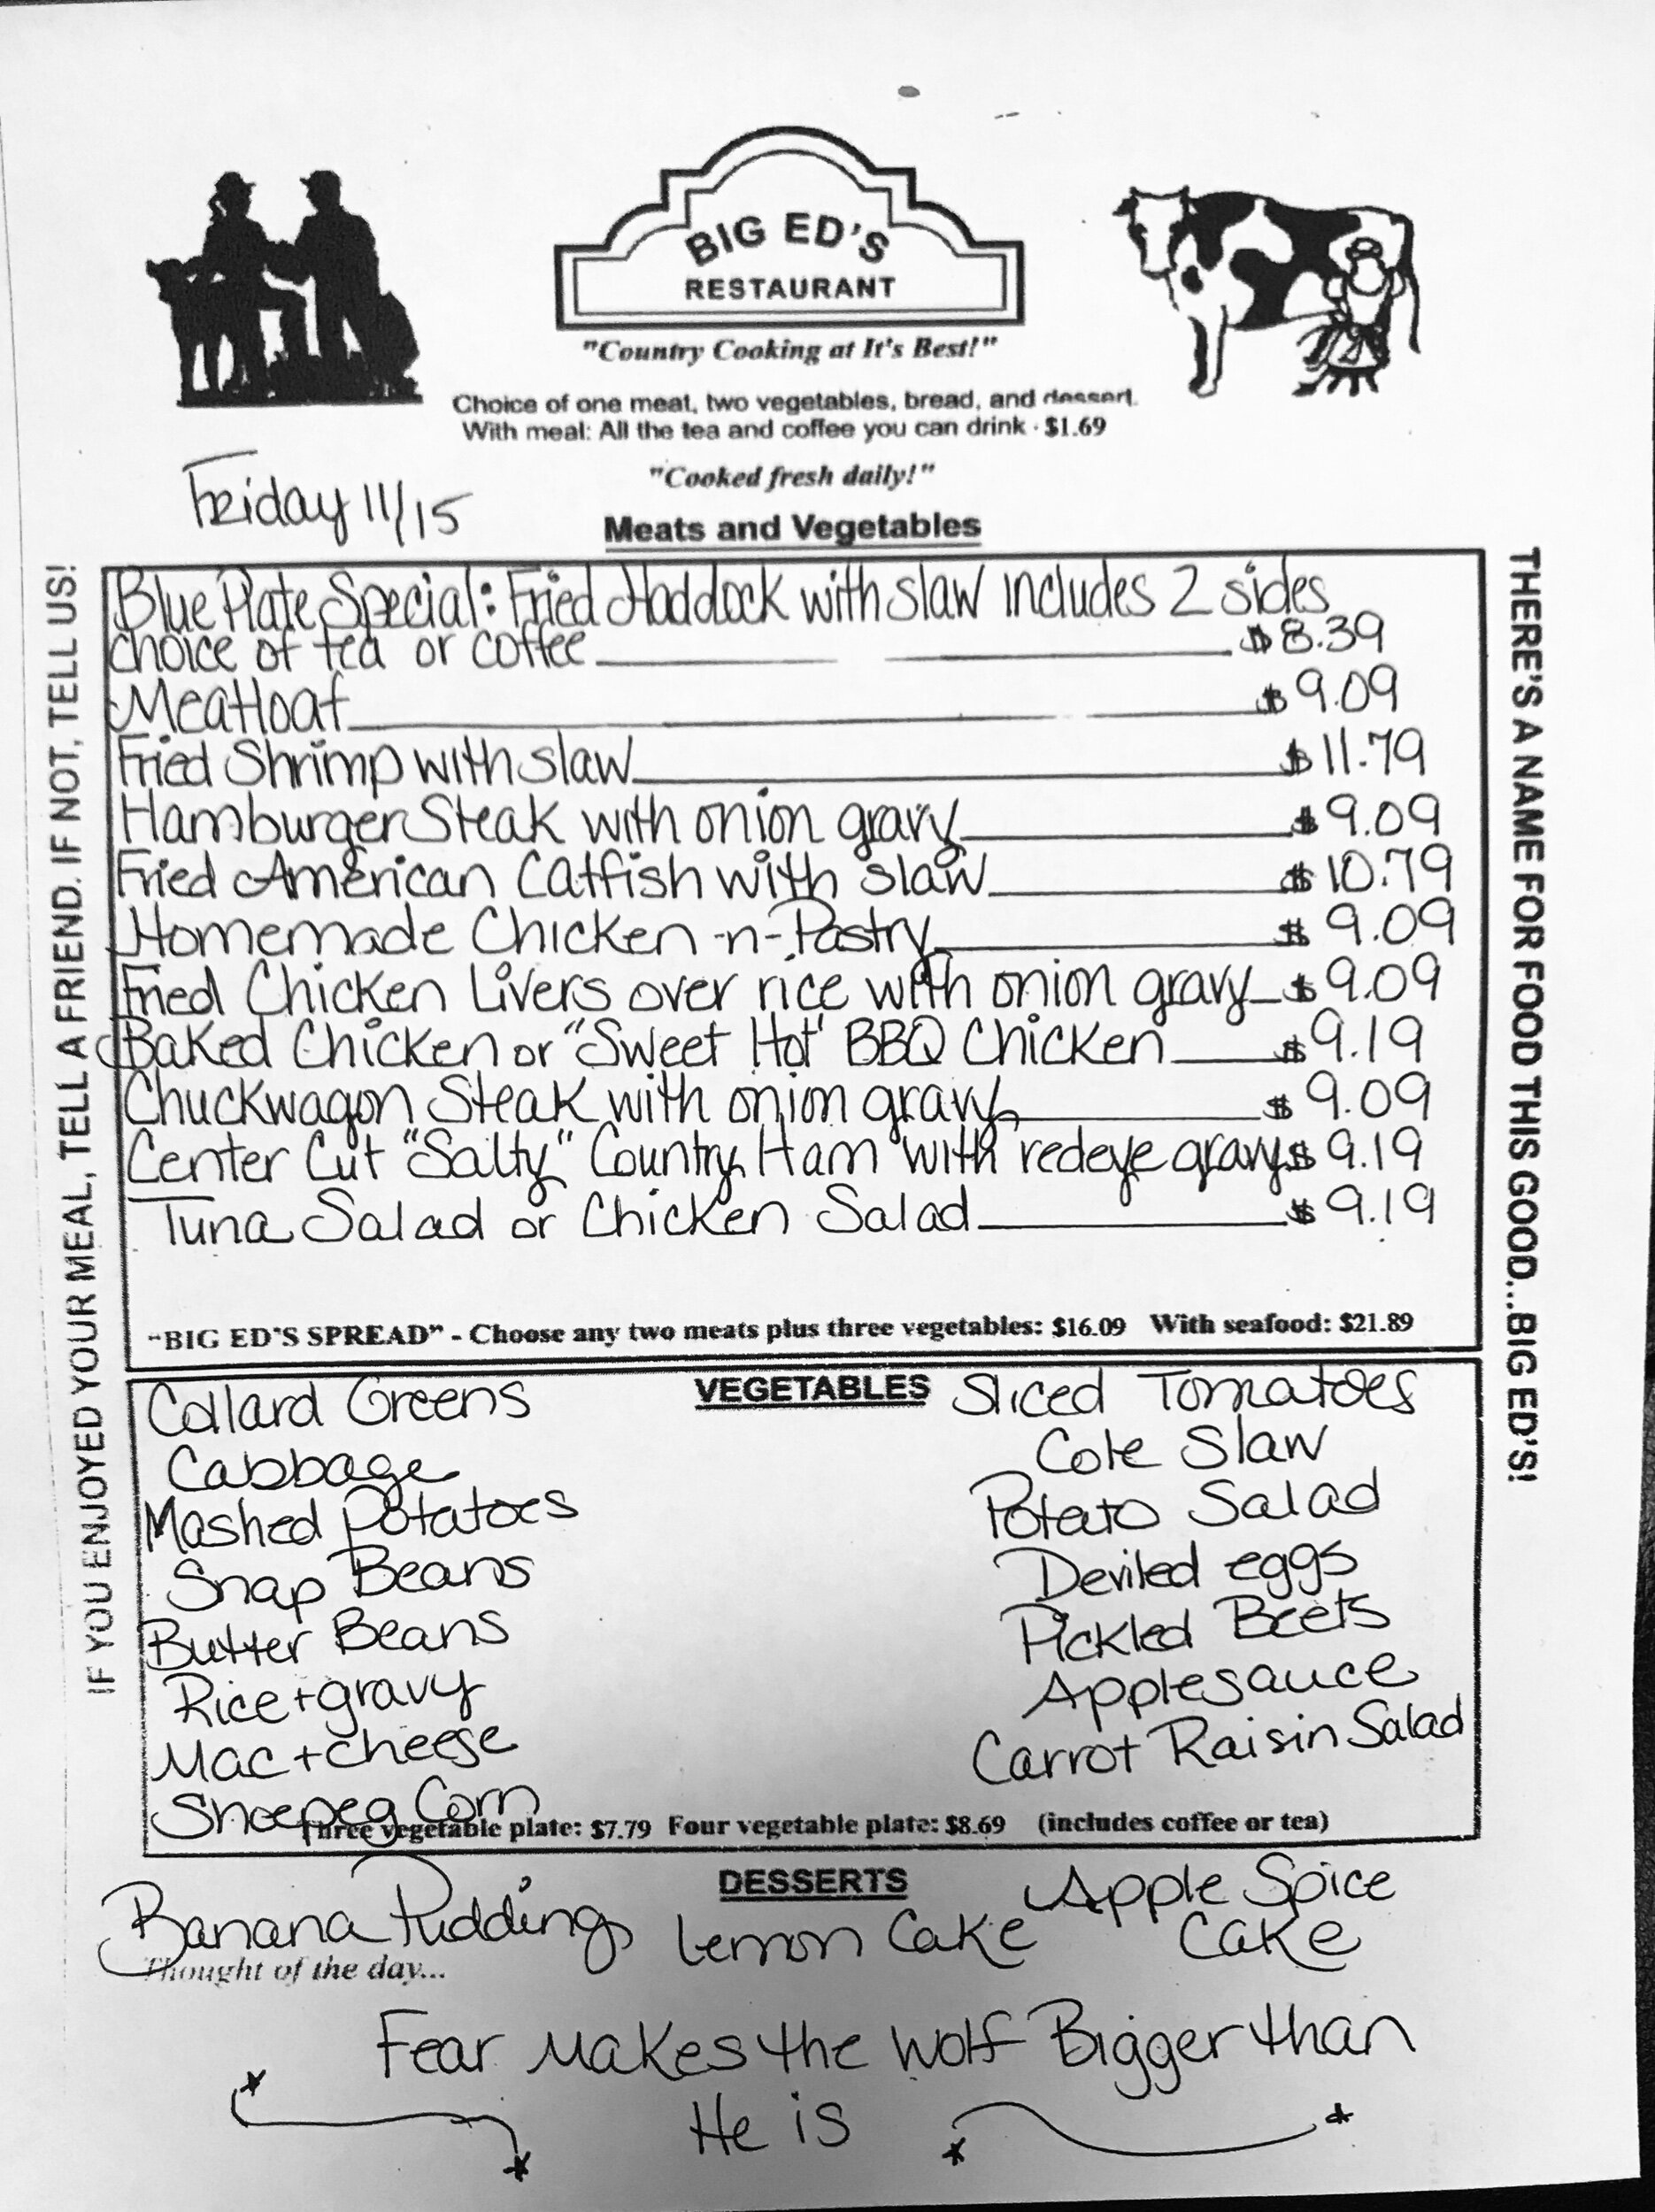 BIG ED'S
RESTAURANT
"Country Cooking at It's Best!"
Choice of one meat, two vegetables, bread, and dessert.
With meal: All the tea and coffee you can drink · $1.69
"Cooked fresh daily!"
Friday 11/15
Meats and Vegetables
Blue Plate Special: Fried Haddock with slaw includes 2 sides
choice of tea or coffee $8.39
Meatloaf $9.09
Fried Shrimp with slaw $11.79
Hamburger Steak with onion gravy $9.09
Fried American Catfish with slaw $10.79
Homemade Chicken -n- Pastry $9.09
Fried Chicken Livers over rice with onion gravy $9.09
Baked Chicken or "Sweet Hot" BBQ Chicken $9.19
Chuckwagon Steak with onion gravy $9.09
Center Cut "Salty" Country Ham with redeye gravy $9.19
Tuna Salad or Chicken Salad $9.19
"BIG ED'S SPREAD" - Choose any two meats plus three vegetables: $16.09 With seafood: $21.89
VEGETABLES
Collard Greens
Cabbage
Mashed Potatoes
Snap Beans
Butter Beans
Rice + gravy
Mac + cheese
Shoepeg Corn
Sliced Tomatoes
Cole Slaw
Potato Salad
Deviled eggs
Pickled Beets
Applesauce
Carrot Raisin Salad
Three vegetable plate: $7.79 Four vegetable plate: $8.69 (includes coffee or tea)
DESSERTS
Banana Pudding
Lemon Cake
Apple Spice
Cake
Thought of the day...
Fear Makes the Wolf Bigger than
He is
IF YOU ENJOYED YOUR MEAL, TELL A FRIEND. IF NOT, TELL US!
THERE'S A NAME FOR FOOD THIS GOOD...BIG ED'S!